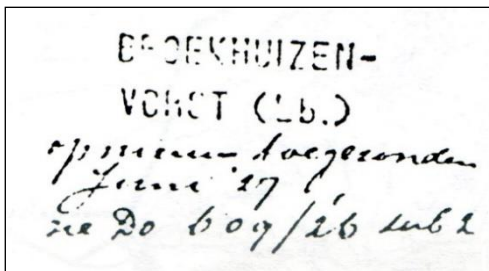 BROEKHUIZEN-
VORST (Lb.)
opnieuw toegezonden
Juni '27
zie Do 609/26 sub 2